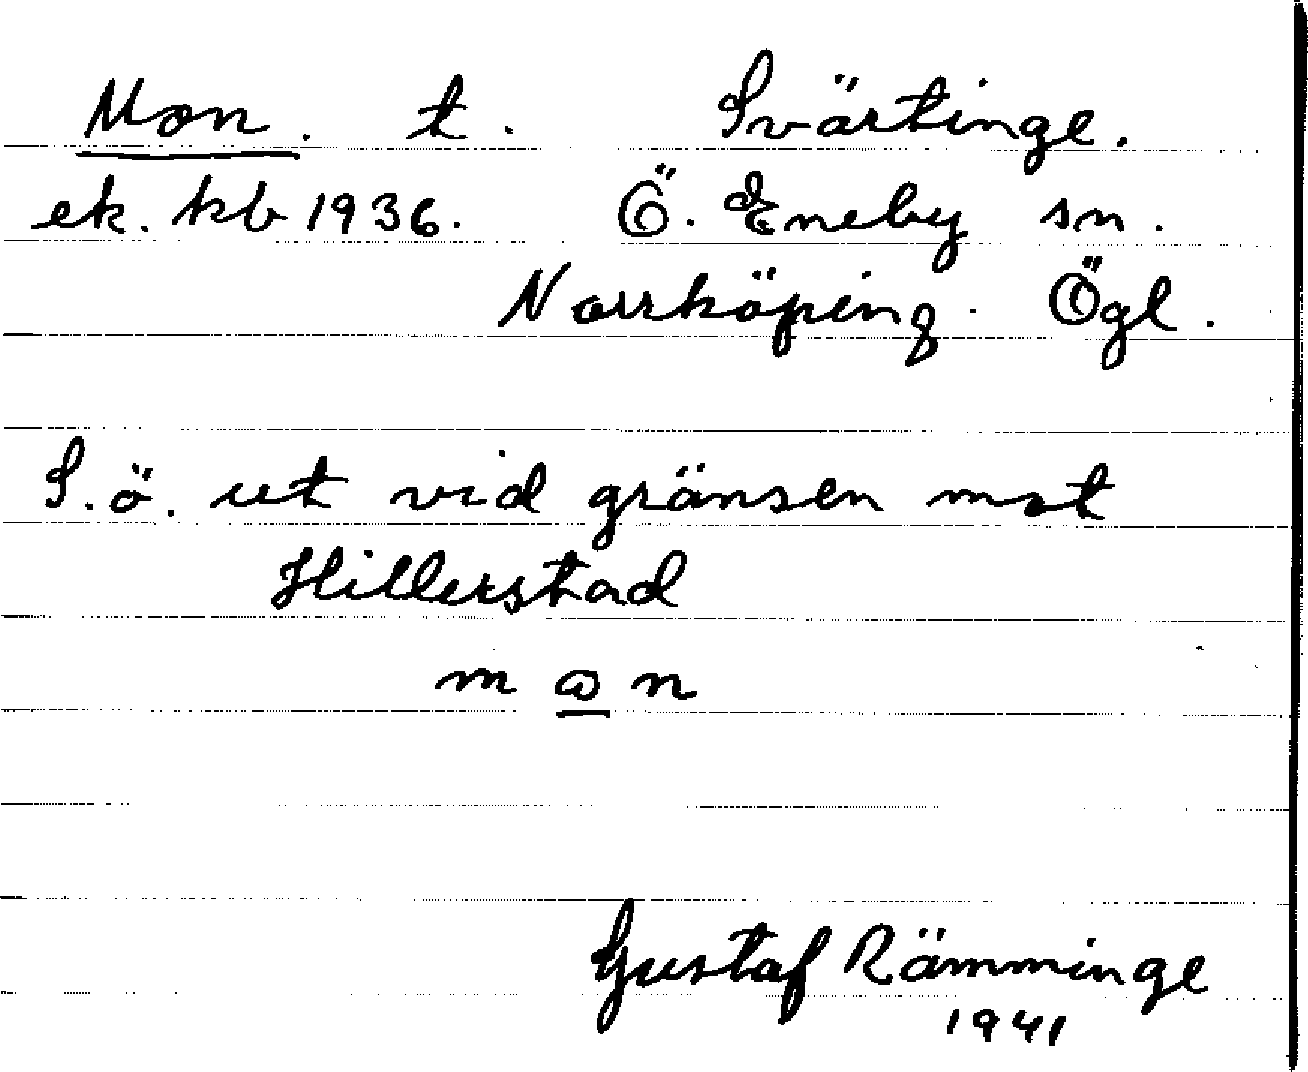 Mon. t. Svärtinge.
ek. kb 1936. Ö. Eneby sn.
Norrköping. Ögl.
S. ö. ut vid gränsen mot
Hillerstad
m ω n
Gustaf Rämminge
1941